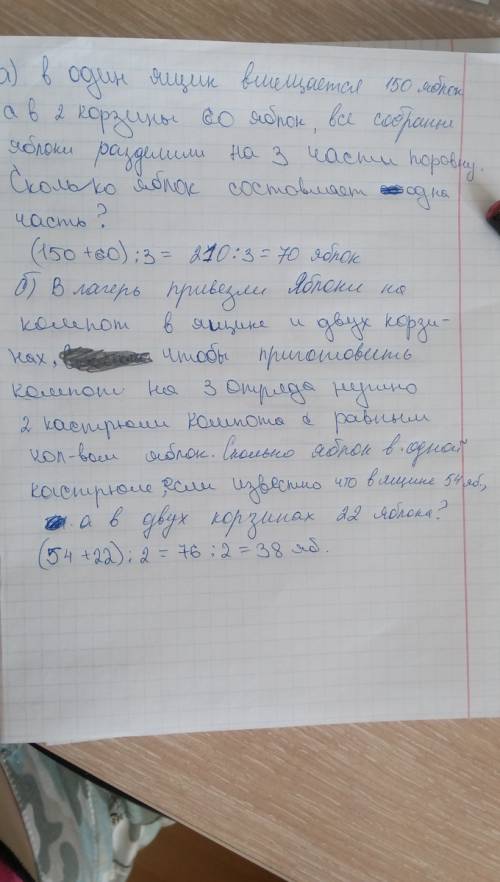 а) в один ящик вмещается 150 яблок
а в 2 корзины 60 яблок, все собранне
яблоки разделили на 3 части поровну.
Сколько яблок составляет одна
часть?
(150+60):3= 210:3=70 яблок
б) В лагерь привезли яблоки на
компот в ящике и двух корзи-
нах, чтобы приготовить
компот на 3 отряда нужно
2 кастрюли компота с равным
кол-вом яблок. Сколько яблок в одной
кастрюле, если известно что в ящике 54 яб.,
а в двух корзинах 22 яблока?
(54+22):2=76:2=38 яб.